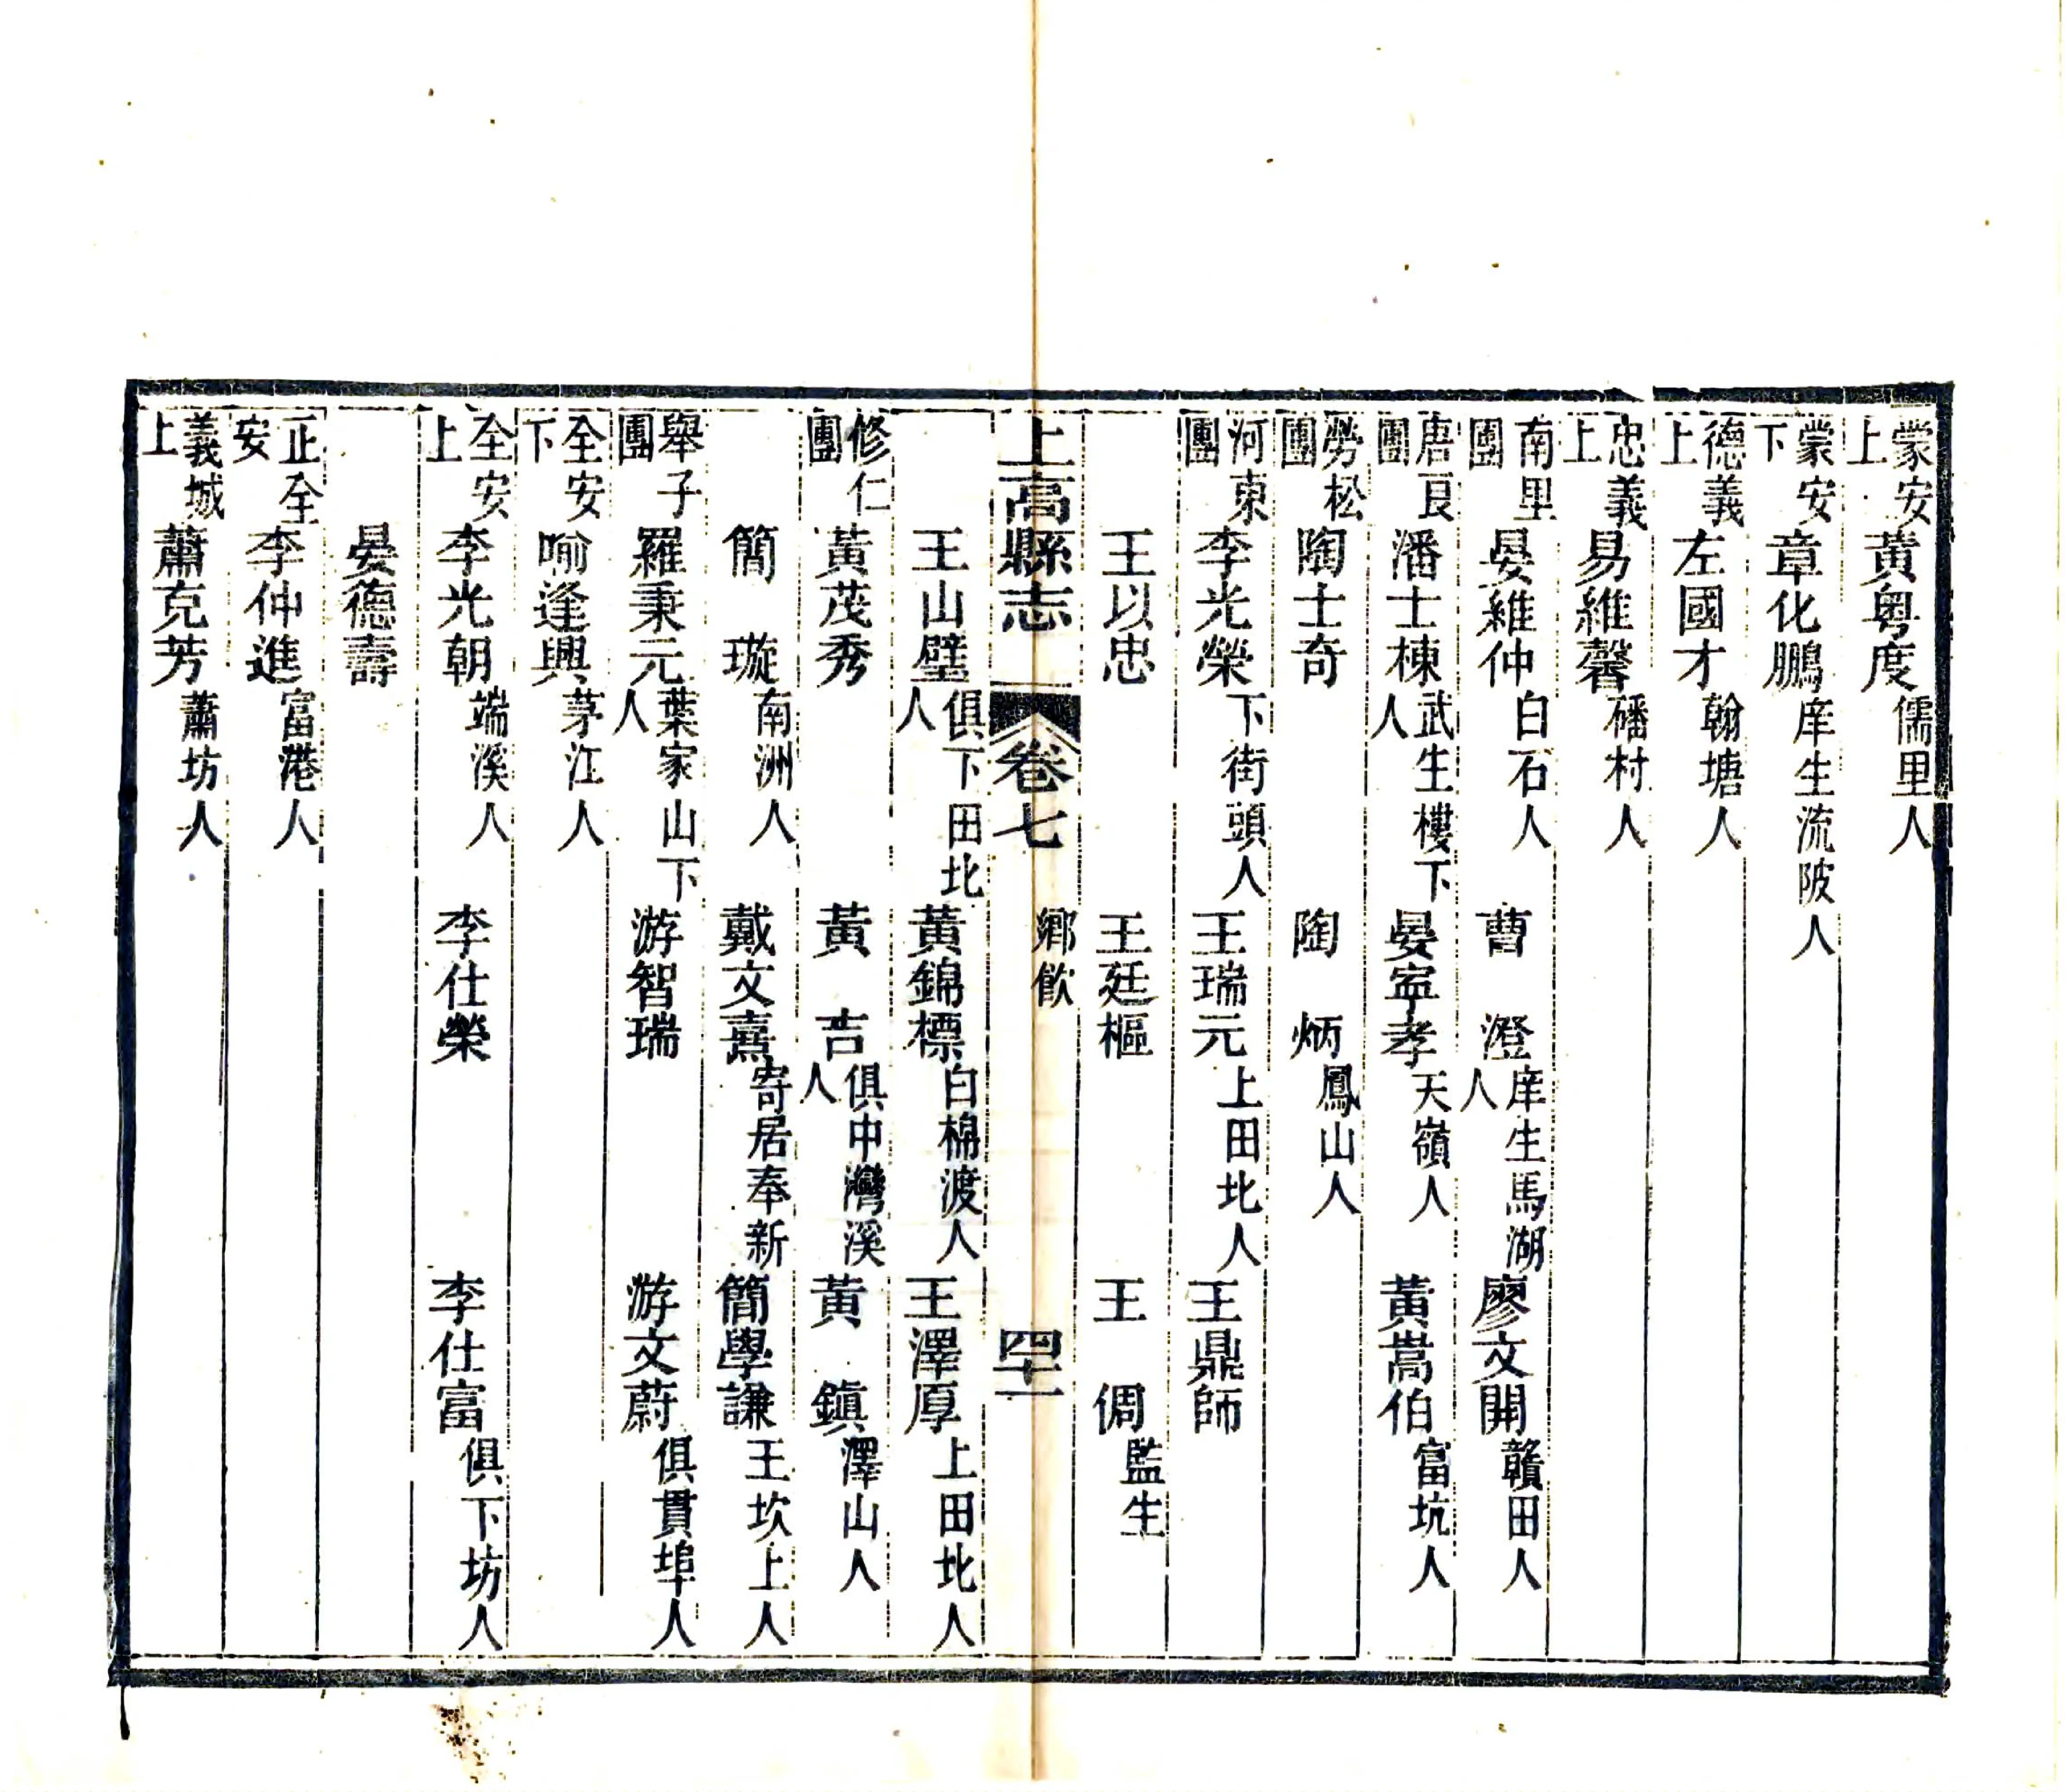 蒙安上 黃粤度 儒里人
蒙安下 章化鵬 庠生流陂人
德義上 左國才 翰塘人
忠義上 易維馨 磻村人
南里團 晏維仲 白石人 曹澄 庠生馬湖人 廖文開 贛田人
唐良團 潘士棟 武生樓下人 晏寍孝 天嶺人 黃嵩伯 富坑人
勞松團 陶士奇 陶炳 鳳山人
河東團 李光榮 下街頭人 王瑞元 上田北人 王鼎師
王以忠 王廷樞 王倜 監生
上高縣志 卷七 鄉飲 四十一
王山壁 俱下田北人 黃錦標 白棉渡人 王澤厚 上田北人
修仁團 黃茂秀 黃吉 俱中灣溪人 黃鎮 澤山人
簡璇 南洲人 戴文熹 寄居奉新 簡學謙 王坎上人
舉子團 羅秉元 葉家山下人 游智瑞 游文蔚 俱貫埠人
全安下 喻逢興 茅江人
全安上 李光朝 端溪人 李仕榮 李仕富 俱下坊人
晏德壽
正全安 李仲進 富港人
義城上 蕭克芳 蕭坊人